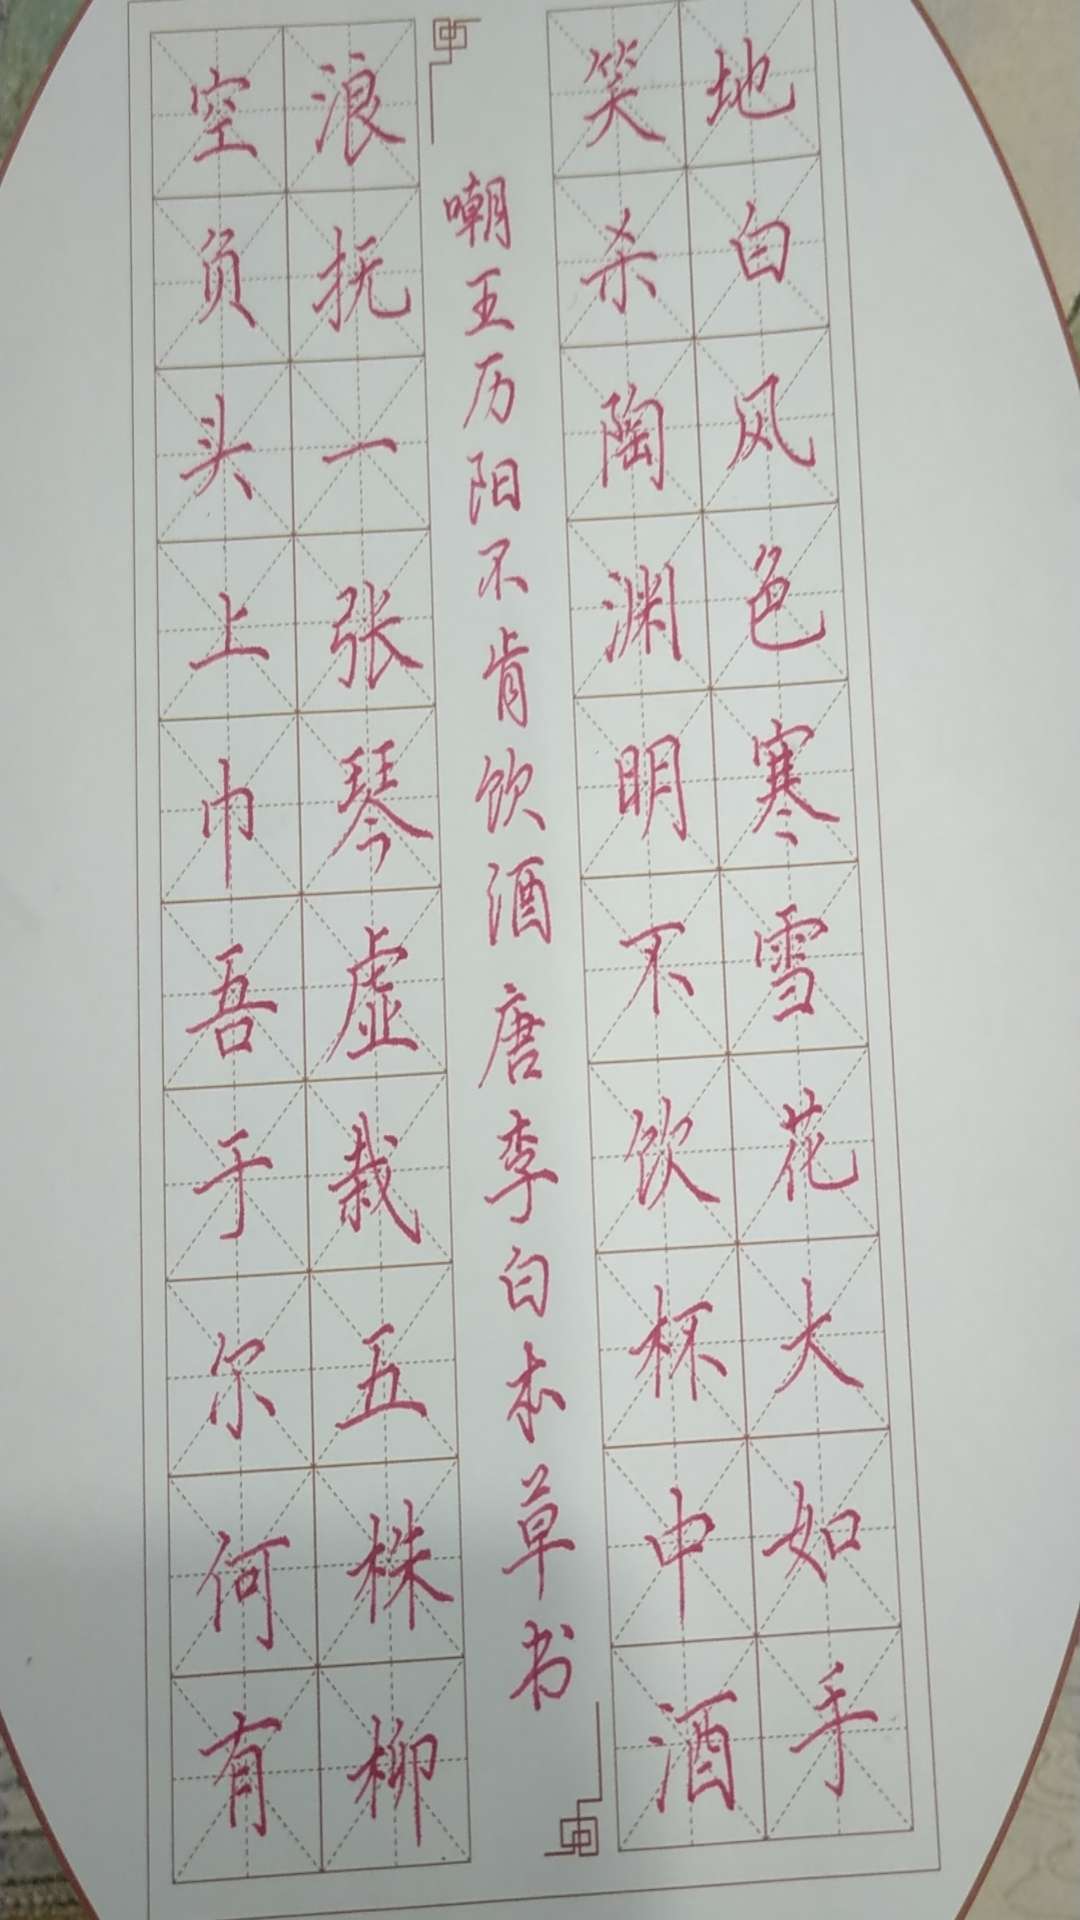 地白风色寒雪花大如手
笑杀陶渊明不饮杯中酒
嘲王历阳不肯饮酒 唐李白 本草书
浪抚一张琴虚栽五株柳
空负头上巾吾于尔何有